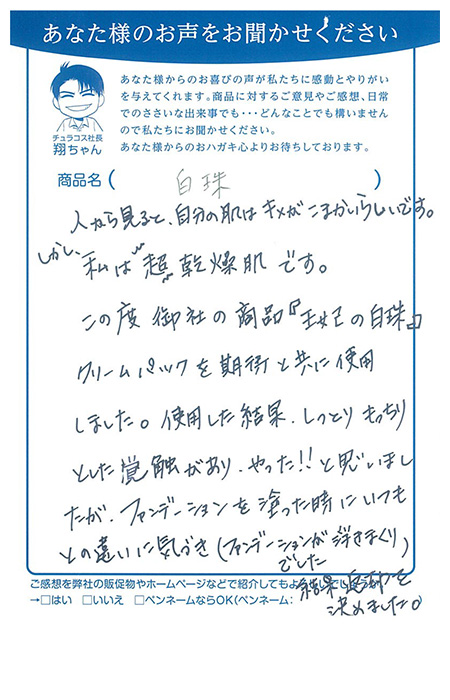 あなた様のお声をお聞かせください
あなた様からのお喜びの声が私たちに感動とやりがい
を与えてくれます。商品に対するご意見やご感想、日常
でのささいな出来事でも・・・どんなことでも構いません
ので私たちにお聞かせください。
あなた様からのおハガキ心よりお待ちしております。
チュラコス社長
翔ちゃん
商品名( 白珠 )
人から見ると、自分の肌はキメがこまかいらしいです。
しかし、私は"超"乾燥肌です。
この度 御社の商品『王妃の白珠』
クリームパックを期待と共に使用
しました。使用した結果、しっとりもっちり
とした覚触があり、やった!!と思いまし
たが、ファンデーションを塗った時にいつも
との違いに気づき(ファンデーションが浮きまくり)
でした
結果 返却を
決めました。
ご感想を弊社の販促物やホームページなどで紹介しても
→□はい □いいえ □ペンネームならOK(ペンネーム: